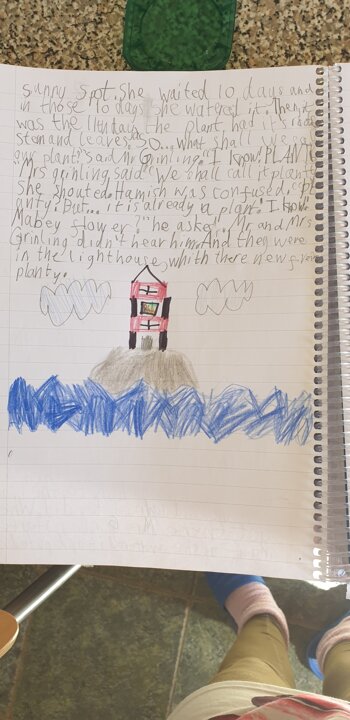 sunny spot. she waited 10 days and
in those 10 days she watered it. Then it
was the 11th day the plant had its
stem and leaves. So... what shall we
our plant? said Mr Grinling. I know! PLANTY
Mrs grinling said. We shall call it planty
she shouted. Hamish was confused.
anty? But... it is already a plant. I know.
Mabey flower? he asked. Mr and Mrs
Grinling didn't hear him. And they were
in the lighthouse whith there new
planty.